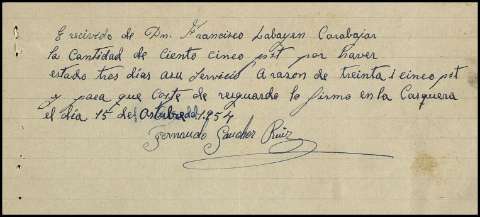 E recivido de Dn. Francisco Labayen Carabajar
la Cantidad de Ciento Cinco pst por haver
estado tres dias asu Servicio A razon de treinta i cinco pst
y paea que Coste de resguardo lo firmo en la Casquera
el dia 15 del Octubre del 1954
Fernando Sanchez Ruiz